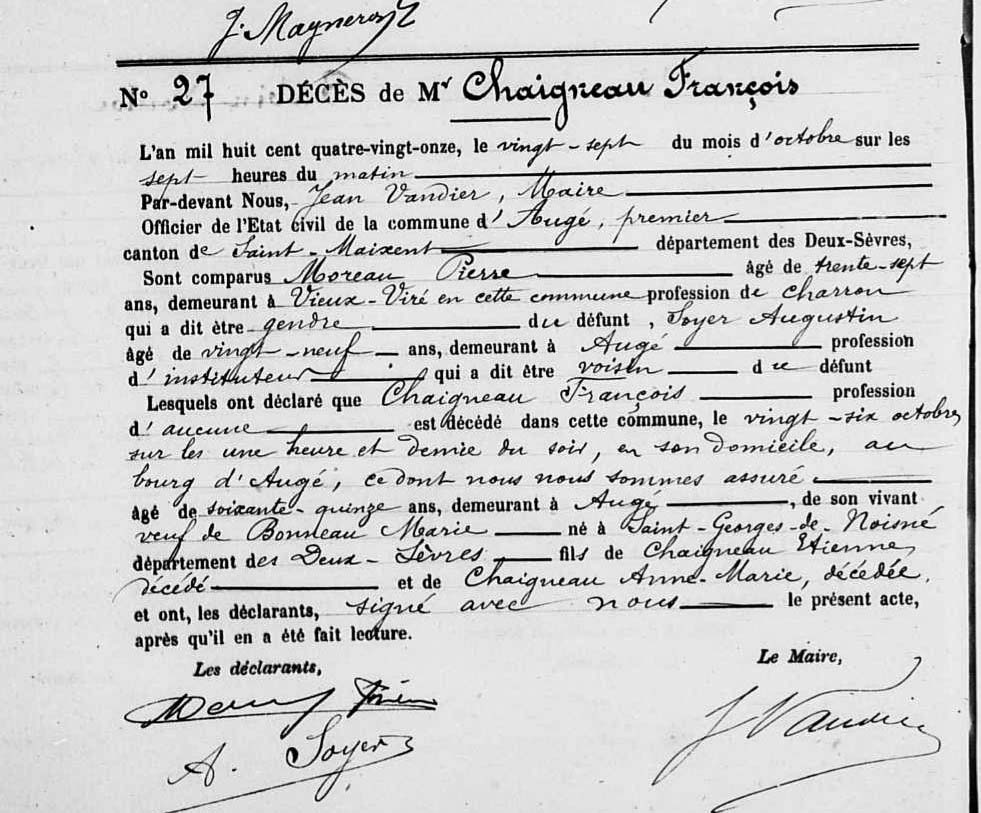 J. Mayneron
N° 27 DÉCÈS de Mr Chaigneau François
L'an mil huit cent quatre-vingt-onze, le vingt-sept du mois d'octobre sur les
sept heures du matin
Par-devant Nous, Jean Vandier, Maire
Officier de l'Etat civil de la commune d'Augé, premier
canton de Saint-Maixent département des Deux-Sèvres,
Sont comparus Moreau Pierre âgé de trente-sept
ans, demeurant à Vieux-Viré en cette commune profession de charron
qui a dit être gendre du défunt, Soyer Augustin
âgé de vingt-neuf ans, demeurant à Augé profession
d'instituteur qui a dit être voisin du défunt
Lesquels ont déclaré que Chaigneau François profession
d'aucune est décédé dans cette commune, le vingt-six octobre,
sur les une heure et demie du soir, en son domicile, au
bourg d'Augé, ce dont nous nous sommes assuré
âgé de soixante-quinze ans, demeurant à Augé, de son vivant
veuf de Bonneau Marie né à Saint-Georges-de-Noisné
département des Deux-Sèvres fils de Chaigneau Etienne,
décédé et de Chaigneau Anne-Marie, décédée.
et ont, les déclarants, signé avec nous le présent acte,
après qu'il en a été fait lecture.
Les déclarants, Le Maire,
J Vandier
A. Soyer